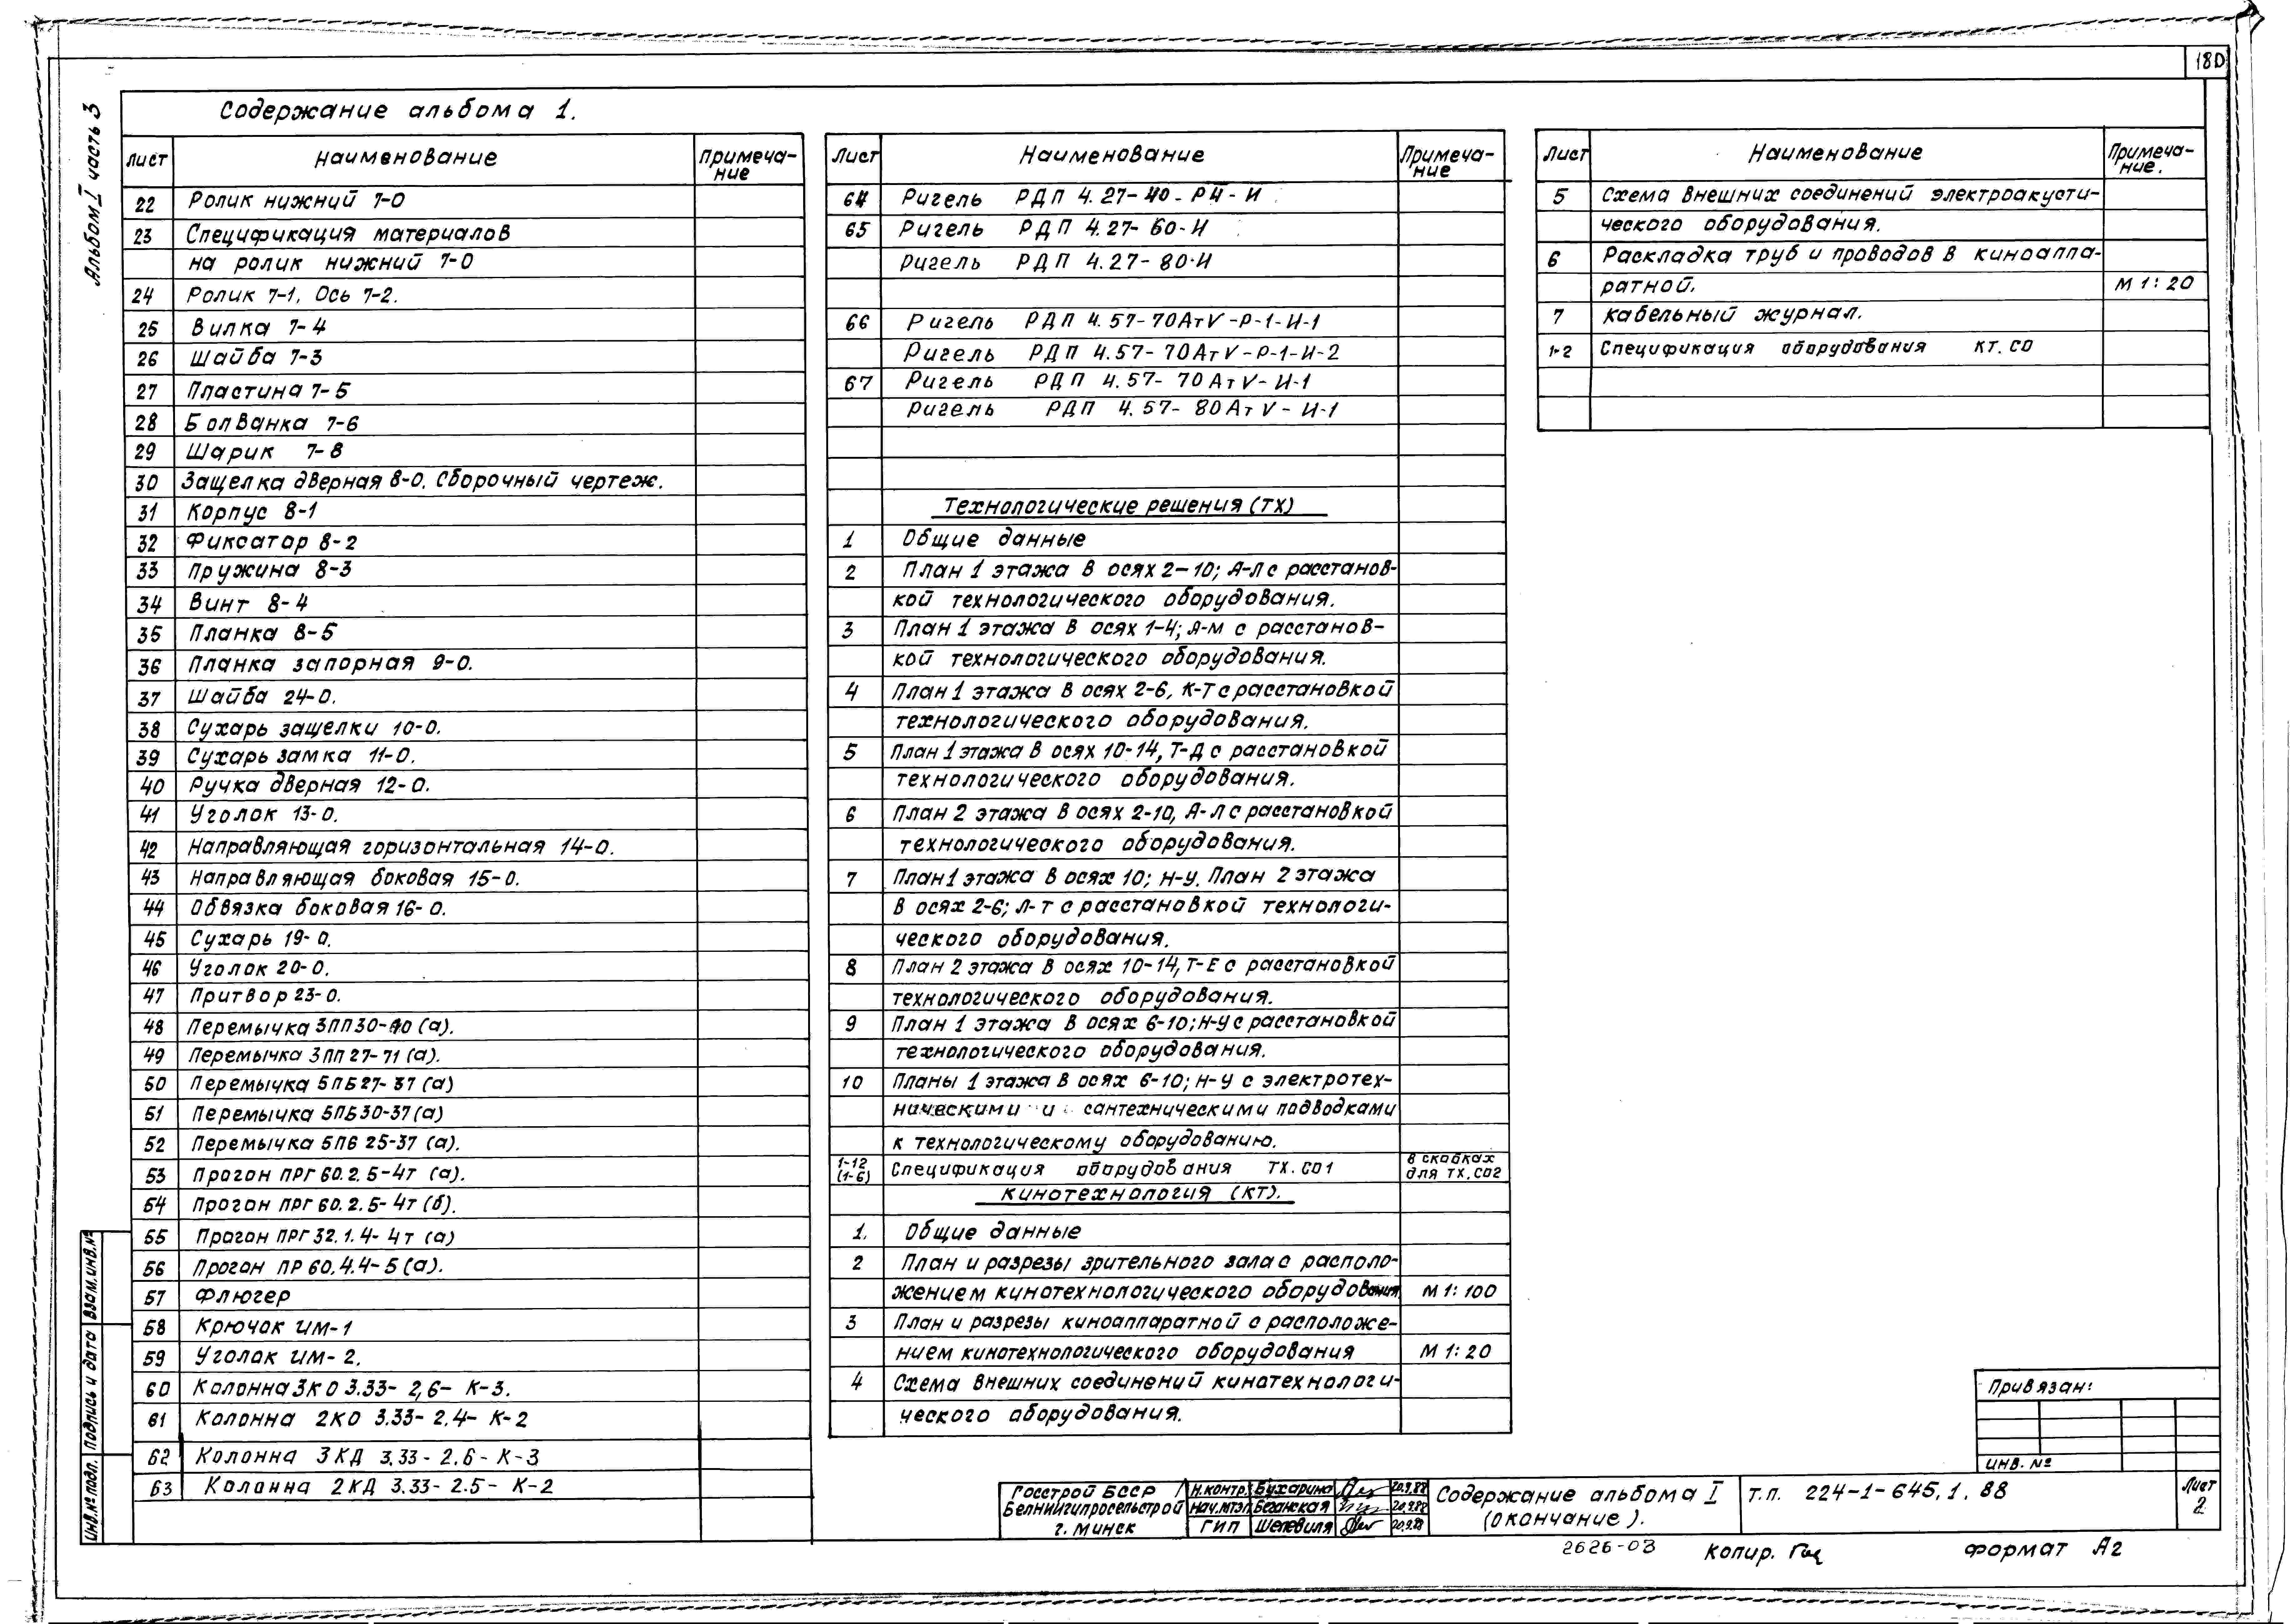 180
Альбом I часть 3
Содержание альбома 1.
Лист Наименование Примеча-
ние
22 Ролик нижний 7-0
23 Спецификация материалов
на ролик нижний 7-0
24 Ролик 7-1, Ось 7-2.
25 Вилка 7-4
26 Шайба 7-3
27 Пластина 7-5
28 Болванка 7-6
29 Шарик 7-8
30 Защелка дверная 8-0. Сборочный чертеж.
31 Корпус 8-1
32 Фиксатор 8-2
33 Пружина 8-3
34 Винт 8-4
35 Планка 8-5
36 Планка запорная 9-0.
37 Шайба 24-0.
38 Сухарь защелки 10-0.
39 Сухарь замка 11-0.
40 Ручка дверная 12-0.
41 Уголок 13-0.
42 Направляющая горизонтальная 14-0.
43 Направляющая боковая 15-0.
44 Обвязка боковая 16-0.
45 Сухарь 19-0.
46 Уголок 20-0.
47 Притвор 23-0.
48 Перемычка 3ПП30-10 (а).
49 Перемычка 3ПП 27-71 (а).
50 Перемычка 5ПБ27-37 (а)
51 Перемычка 5ПБ30-37 (а)
52 Перемычка 5ПБ 25-37 (а).
53 Прогон ПРГ 60.2.5-4т (а).
54 Прогон ПРГ 60.2.5-4т (б).
55 Прогон ПРГ 32.1.4-4т (а)
56 Прогон ПР 60.4.4-5 (а).
57 Флюгер
58 Крючок ИМ-1
59 Уголок ИМ-2.
60 Колонна 3КО 3.33-2,6-К-3.
61 Колонна 2КО 3.33-2.4-К-2
62 Колонна 3КД 3.33-2.6-К-3
63 Колонна 2КД 3.33-2.5-К-2
Лист Наименование Примеча-
ние
64 Ригель РДП 4.27-40-РН-И
65 Ригель РДП 4.27-60-И
Ригель РДП 4.27-80-И
66 Ригель РДП 4.57-70АтV-Р-1-И-1
Ригель РДП 4.57-70АтV-Р-1-И-2
67 Ригель РДП 4.57-70АтV-И-1
Ригель РДП 4.57-80АтV-И-1
Технологические решения (ТХ)
1 Общие данные
2 План 1 этажа в осях 2-10; А-Л с расстанов-
кой технологического оборудования.
3 План 1 этажа в осях 1-4; А-М с расстанов-
кой технологического оборудования.
4 План 1 этажа в осях 2-6, К-Т с расстановкой
технологического оборудования.
5 План 1 этажа в осях 10-14, Т-Д с расстановкой
технологического оборудования.
6 План 2 этажа в осях 2-10, А-Л с расстановкой
технологического оборудования.
7 План 1 этажа в осях 10; Н-У. План 2 этажа
в осях 2-6; Л-Т с расстановкой технологи-
ческого оборудования.
8 План 2 этажа в осях 10-14, Т-Е с расстановкой
технологического оборудования.
9 План 1 этажа в осях 6-10; Н-У с расстановкой
технологического оборудования.
10 Планы 1 этажа в осях 6-10; Н-У с электротех-
ническими и сантехническими подводками
к технологическому оборудованию.
1-12 (1-6) Спецификация оборудования ТХ.СО1 в скобках для ТХ.СО2
Кинотехнология (КТ).
1. Общие данные
2 План и разрезы зрительного зала с располо-
жением кинотехнологического оборудования М 1:100
3 План и разрезы киноаппаратной с расположе-
нием кинотехнологического оборудования М 1:20
4 Схема внешних соединений кинотехнологи-
ческого оборудования.
Лист Наименование Примеча-
ние.
5 Схема внешних соединений электроакусти-
ческого оборудования.
6 Раскладка труб и проводов в киноаппа-
ратной. М 1:20
7 Кабельный журнал.
1-2 Спецификация оборудования КТ.СО
Привязан:
Инв. №
Взам.инв.№
Подпись и дата
Инв.№ подл.
Госстрой БССР
Белниигипросельстрой
г. Минск
Н.контр. Бухарина 20.9.88
Нач.мтэл Беганская 20.9.88
ГИП Шелевиля 20.9.88
Содержание альбома I
(окончание).
Т.п. 224-1-645.1.88
Лист
2
2626-03 Копир. формат А2